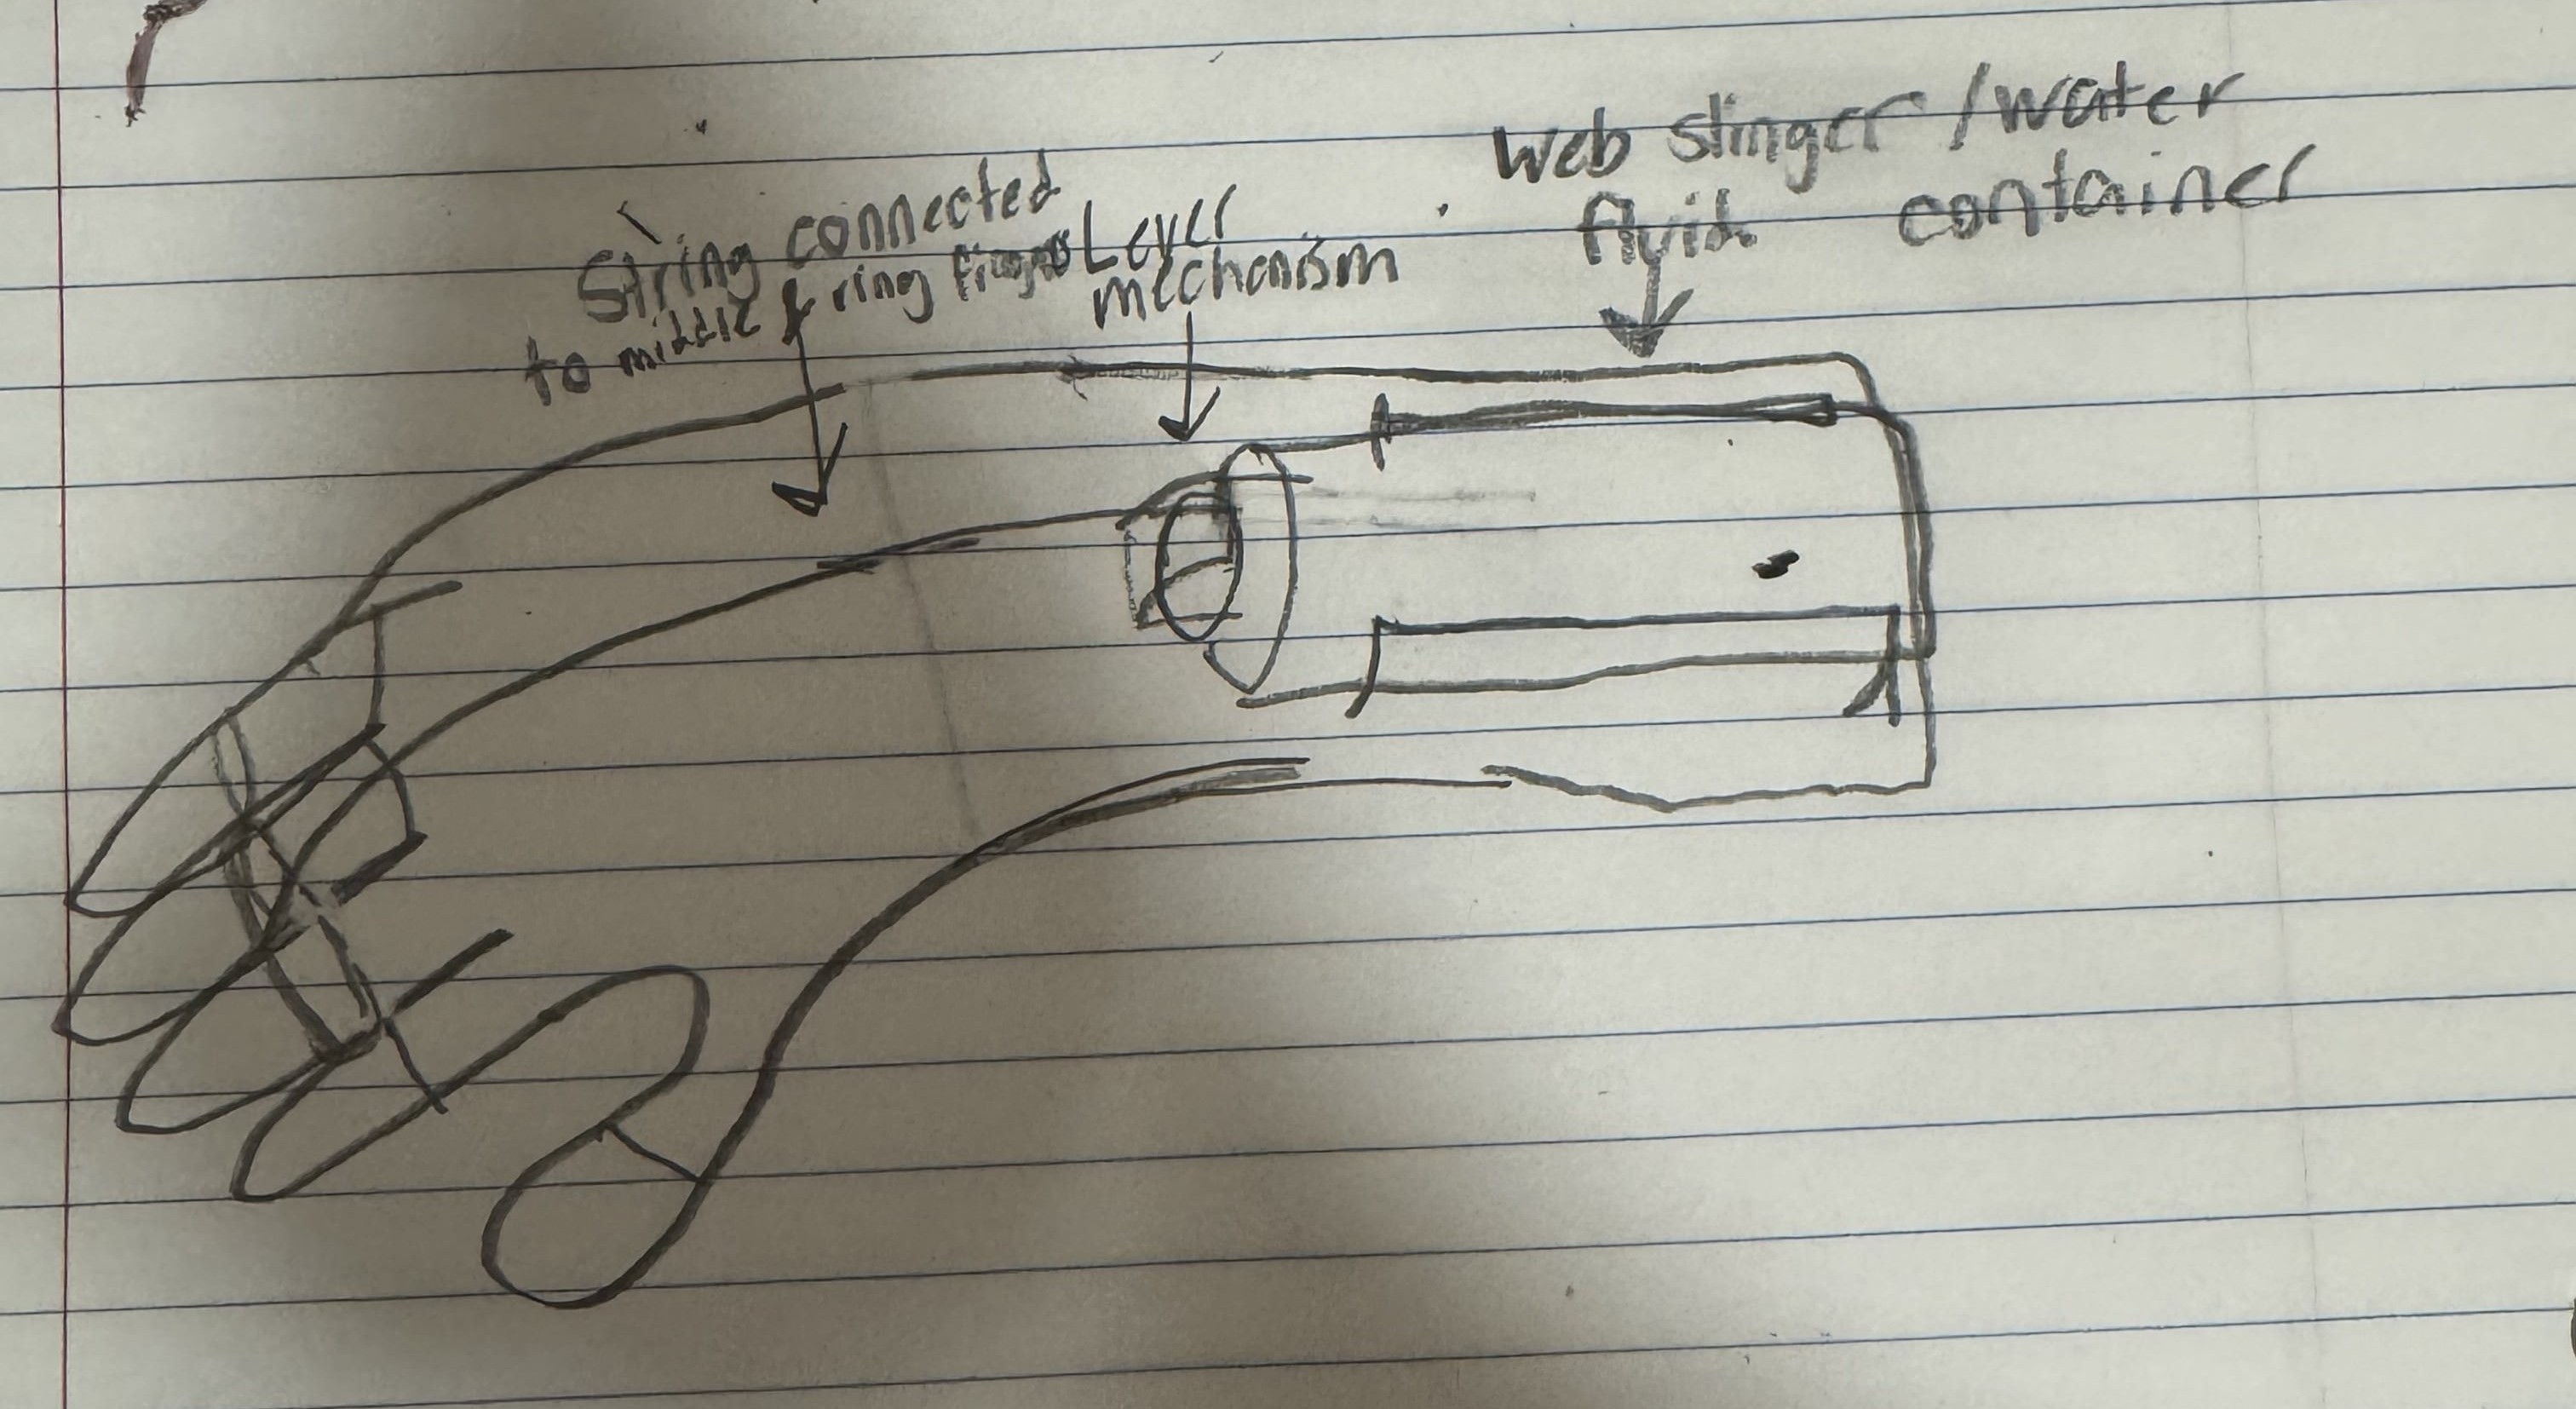 String connected
to middle & ring fingers
Lever
mechanism
Web slinger / water
fluid container